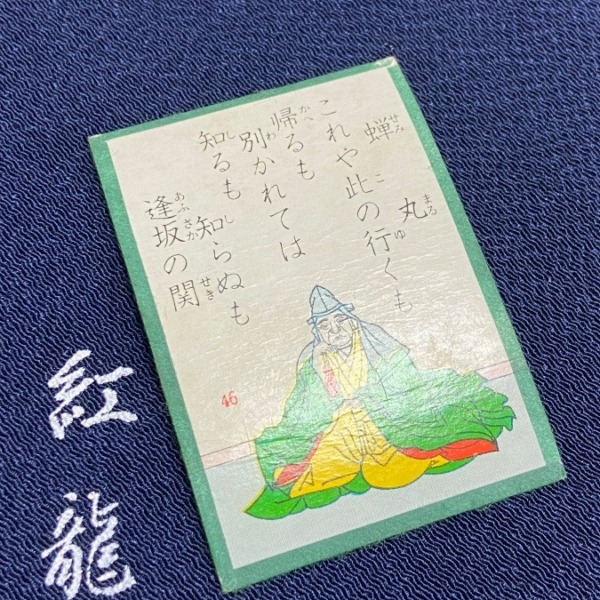 蝉丸
これや此の行くも
帰るも
別かれては
知るも知らぬも
逢坂の関
46
紅龍